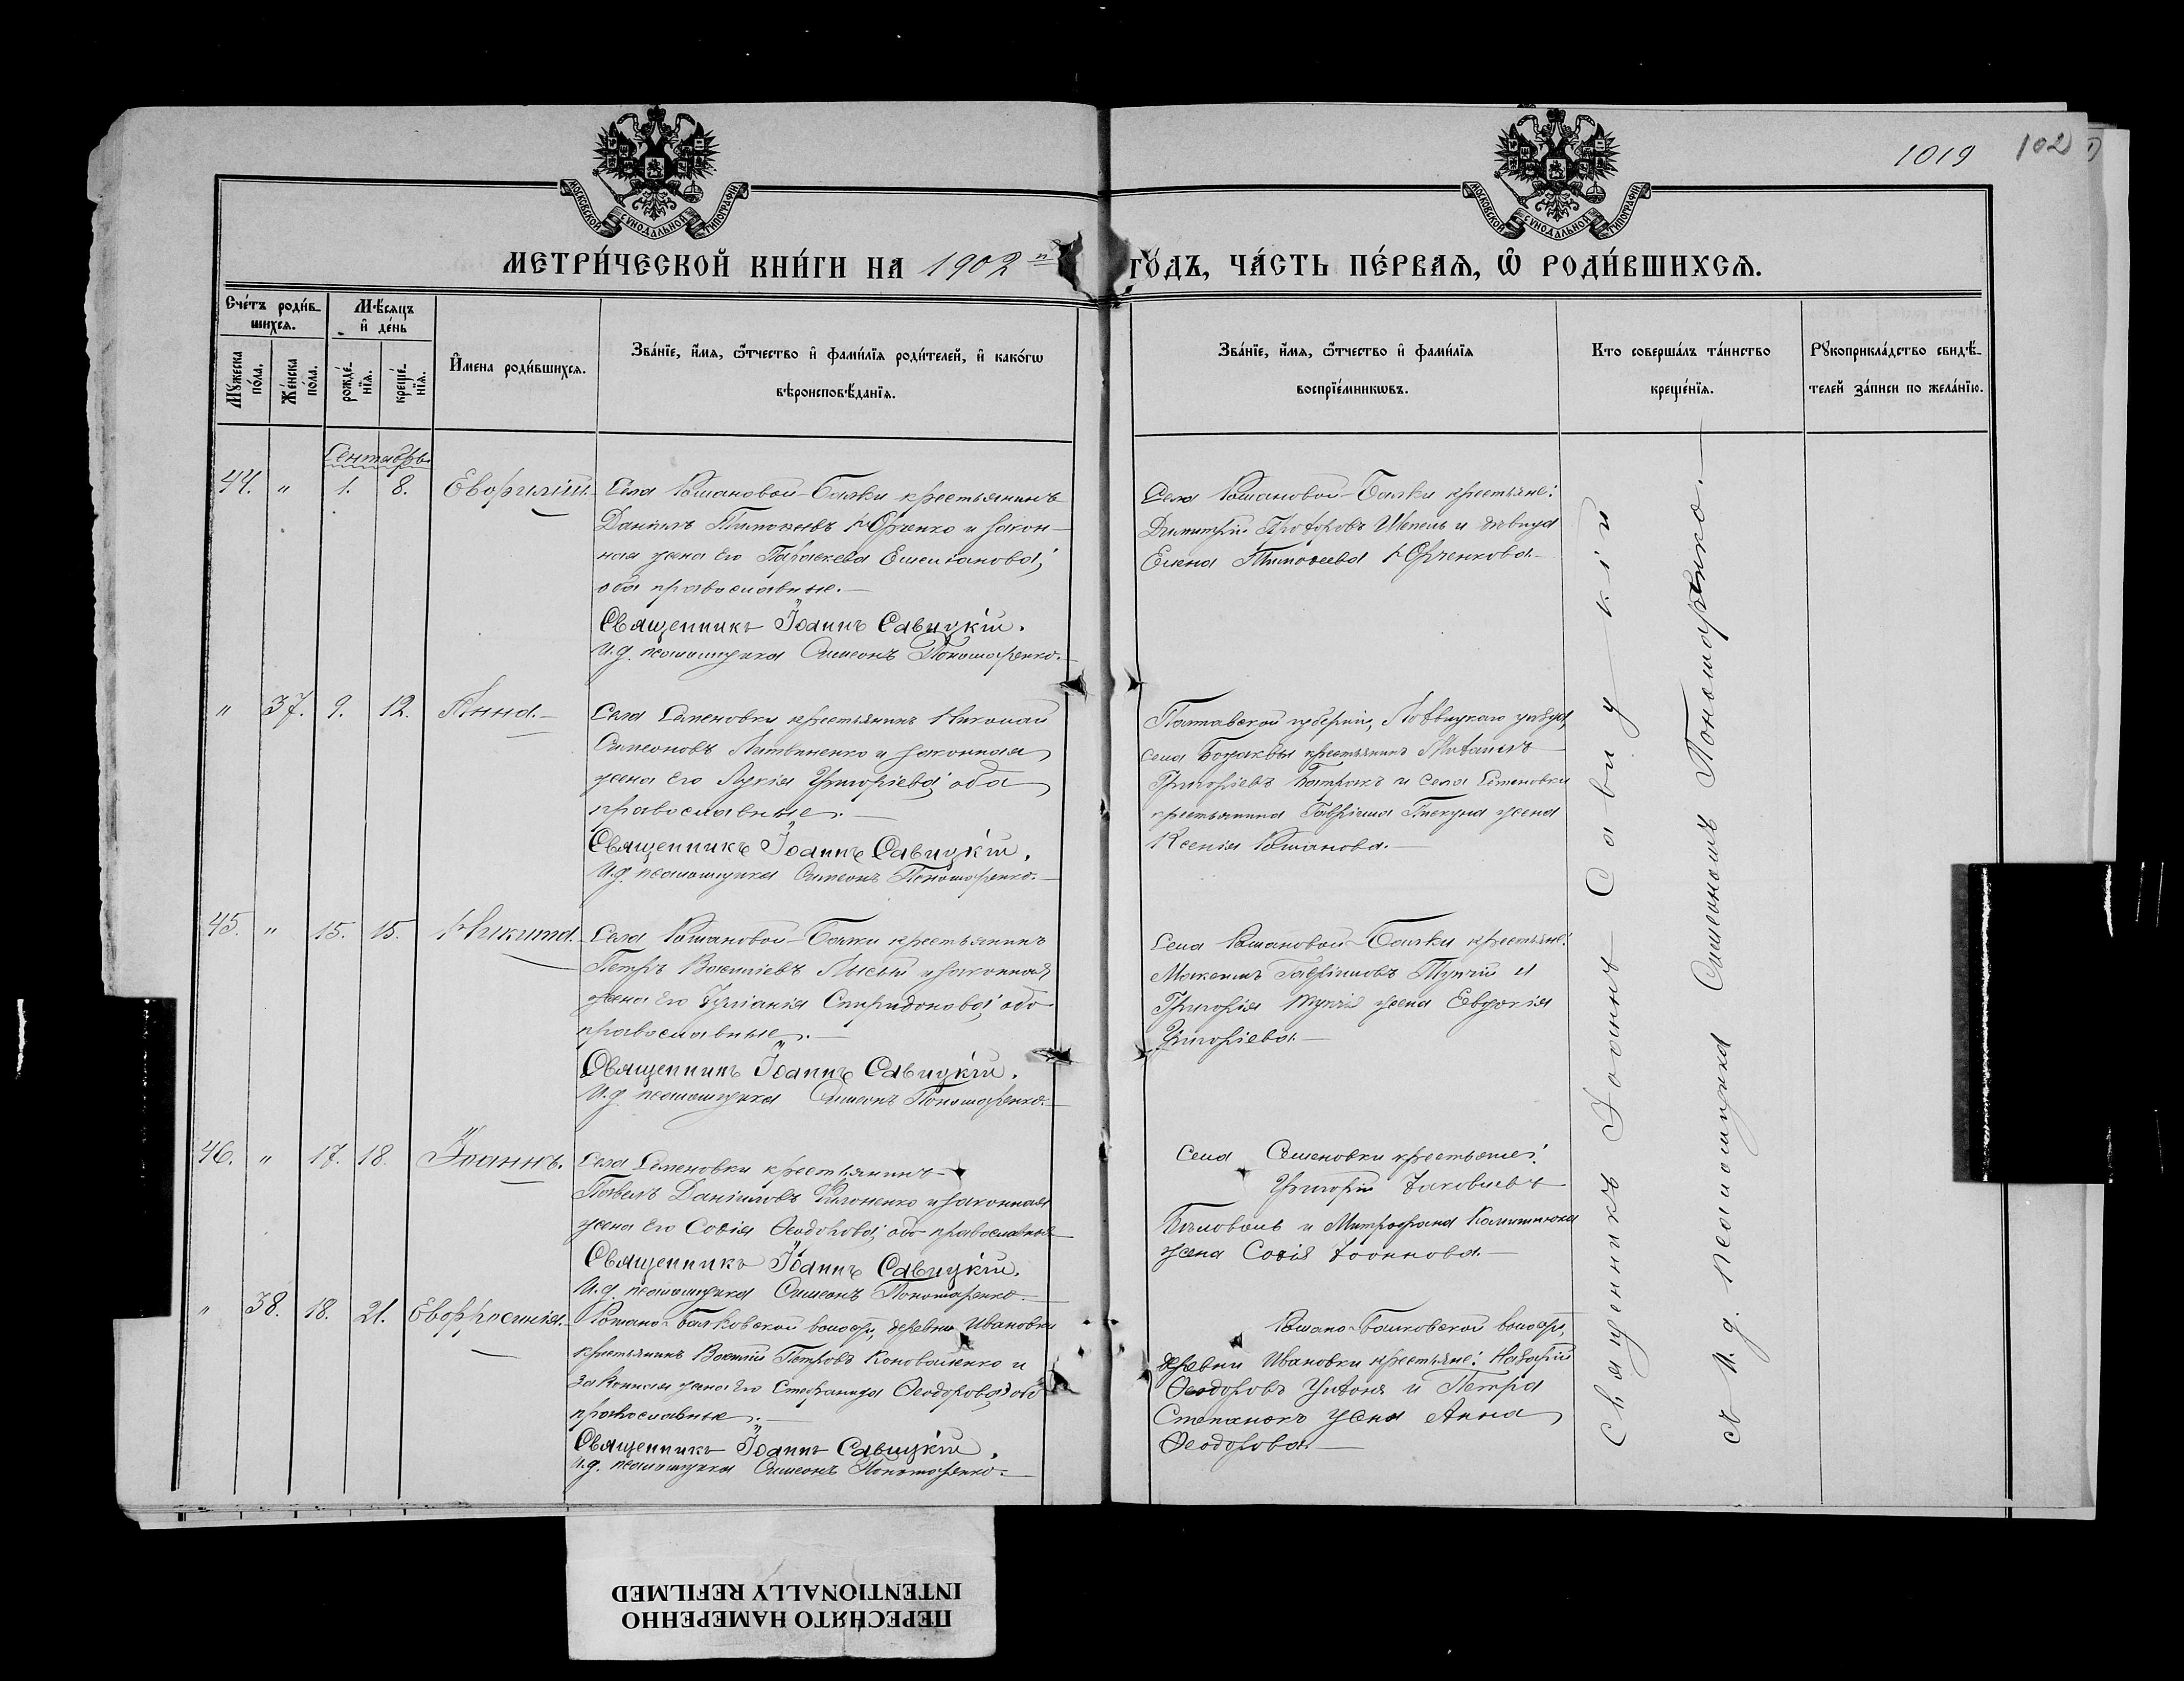 1019
102
МОСКОВСКОЙ СѴНОДАЛЬНОЙ ТИПОГРАФІИ
МОСКОВСКОЙ СѴНОДАЛЬНОЙ ТИПОГРАФІИ
МЕТРИ́ЧЕСКОЙ КНИ́ГИ НА 1902 й
ГО́ДЪ, ЧА́СТЬ ПЕ́РВАѦ, Ѡ҆ РОДИ́ВШИХСѦ.
Сче́тъ роди́в-
шихсѧ.
Мꙋ́жеска по́ла.
Же́нска по́ла.
Мѣ́сѧцъ
и҆ де́нь
рожде́-
нїѧ.
креще́-
нїѧ.
И҆мена роди́вшихсѧ.
Зва́нїе, и҆́мѧ, ѻ҆́тчество и҆ фами́лїѧ роди́телей, и҆ како́гѡ
вѣроисповѣ́данїѧ.
Зва́нїе, и҆́мѧ, ѻ҆́тчество и҆ фами́лїѧ
воспрїе́мникѡвъ.
Кто соверша́лъ та́инство
креще́нїѧ.
Рꙋкоприкла́дство свидѣ́-
телей за́писи по жела́нїю.
Сентябрь
44. " 1. 8. Евфимій.
Села Романовой-Балки крестьянинъ
Даніилъ Тимоѳеевъ Юрченко и закон-
ная жена его Параскева Емеліанова;
оба православные.—
Священникъ Іоаннъ Савицкій.
И.д. псаломщика Симеонъ Пономаренко.—
Села Романовой-Балки крестьяне:
Димитрій Прохоровъ Шепель и дѣвица
Елена Тимоѳеева Юрченкова.—
" 37. 9. 12. Анна.—
Села Семеновки крестьянинъ Николай
Симеоновъ Литвиненко и законная
жена его Лукія Григоріева; оба
православные.—
Священникъ Іоаннъ Савицкій.
И.д. псаломщика Симеонъ Пономаренко.—
Полтавской губерніи, Лохвицкаго уѣзда,
села крестьянинъ Михаилъ
Григоріевъ Батракъ и села Семеновки
крестьянина Гавріила жена
Ксенія Романова.—
45. " 15. 15. Никита.
Села Романовой-Балки крестьянинъ
Петръ Василіевъ Лысый и законная
жена его Іуліанія Спиридонова; оба
православные.—
Священникъ Іоаннъ Савицкій.
И.д. псаломщика Симеонъ Пономаренко.—
Села Романовой-Балки крестьяне:
Максимъ Гавріиловъ Тупчій и
Григорія Тупчія жена Евдокія
Григоріева.—
46. " 17. 18. Іоаннъ.
Села Семеновки крестьянинъ
Павелъ Даніиловъ и законная
жена его Софія Ѳеодорова; оба православные
Священникъ Іоаннъ Савицкій.
И.д. псаломщика Симеонъ Пономаренко.—
Села Семеновки крестьяне:
Григорій Іаковлевъ
Бѣловолъ и Митрофана жена Софія Іоаннова.—
" 38. 18. 21. Евфросинія.
Романо-Балковской волости, деревни Ивановки
крестьянинъ Василій Петровъ Коноваленко и
законная жена его Стефанида Ѳеодорова; оба
православные.—
Священникъ Іоаннъ Савицкій.
И.д. псаломщика Симеонъ Пономаренко.—
Романо-Балковской волости,
деревни Ивановки крестьяне: Назарій
Ѳеодоровъ и Петра
Степанокъ жена Анна
Ѳеодорова.—
Священникъ Іоаннъ Савицкій
и И.д. псаломщика Симеонъ Пономаренко.—
ПЕРЕСНЯТО НАМЕРЕННО
INTENTIONALLY REFILMED